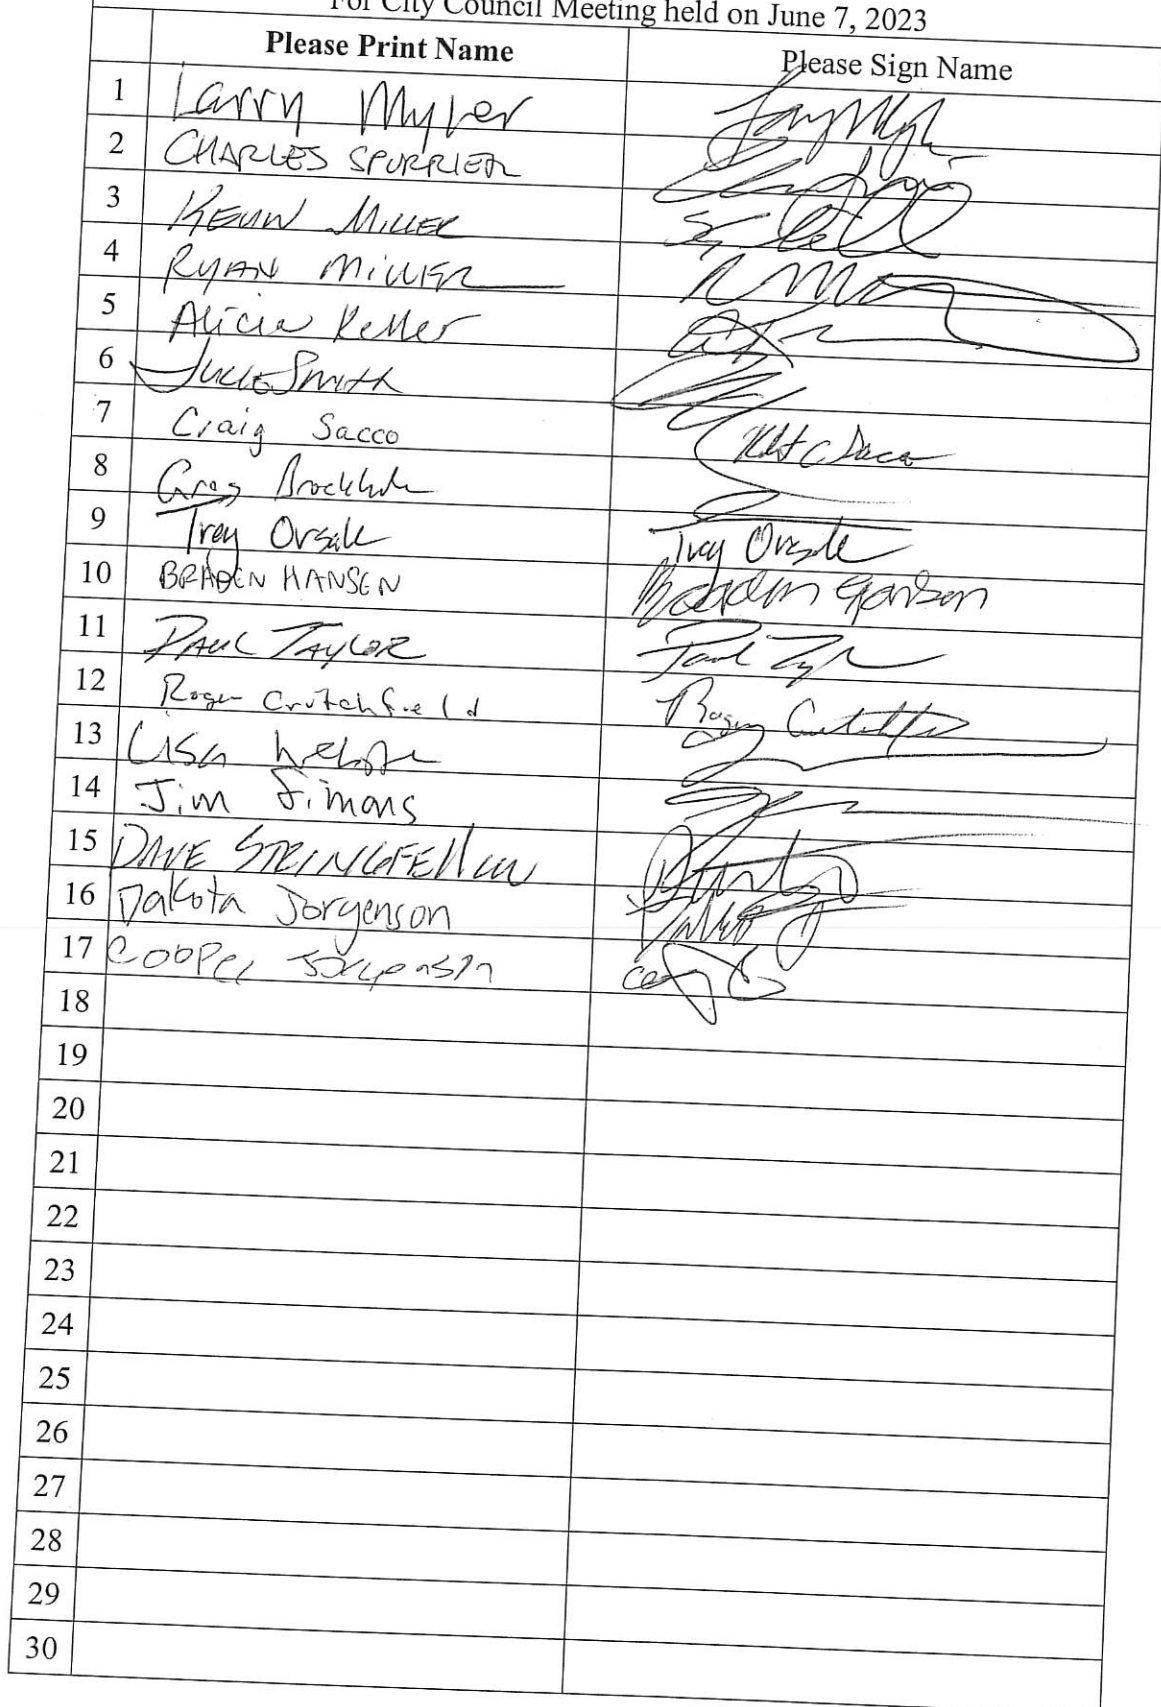 For City Council Meeting held on June 7, 2023
Please Print Name Please Sign Name
1 Larry Myler
2 CHARLES SPURRIER
3 KEVIN MILLER
4 RYAN MILLER
5 Alicia Keller
6 Julie Smith
7 Craig Sacco
8 Greg
9 Trey Orsak Trey Orsak
10 BRADEN HANSEN
11 PAUL TAYLOR Paul Taylor
12 Roger Crutchfield Roger Crutchfield
13 Lisa Webster
14 Jim Simons
15 DAVE STRINGFELLOW
16 Dakota Jorgenson
17 Cooper Jorgenson
18
19
20
21
22
23
24
25
26
27
28
29
30